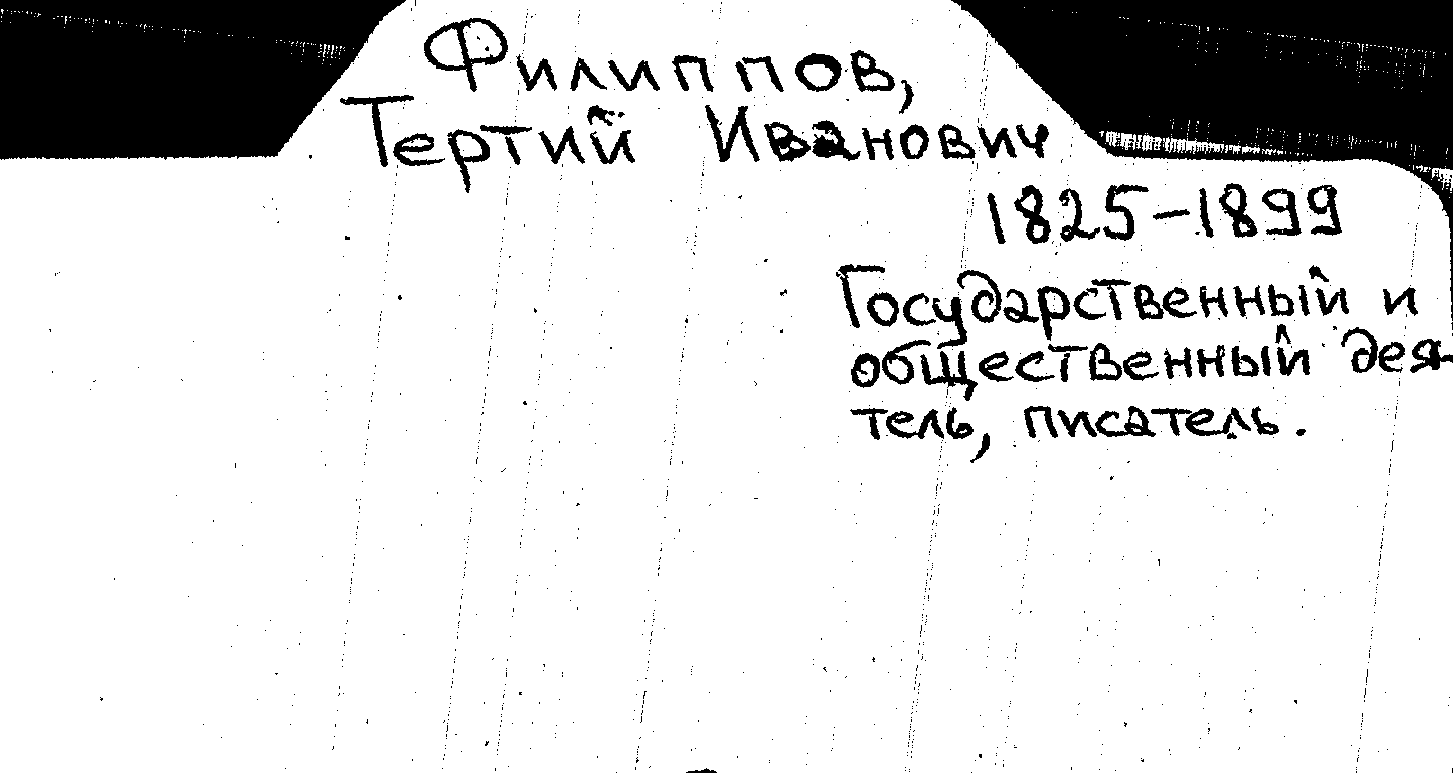 Филиппов,
Тертий Иванович
1825-1899
Государственный и
общественный дея-
тель, писатель.